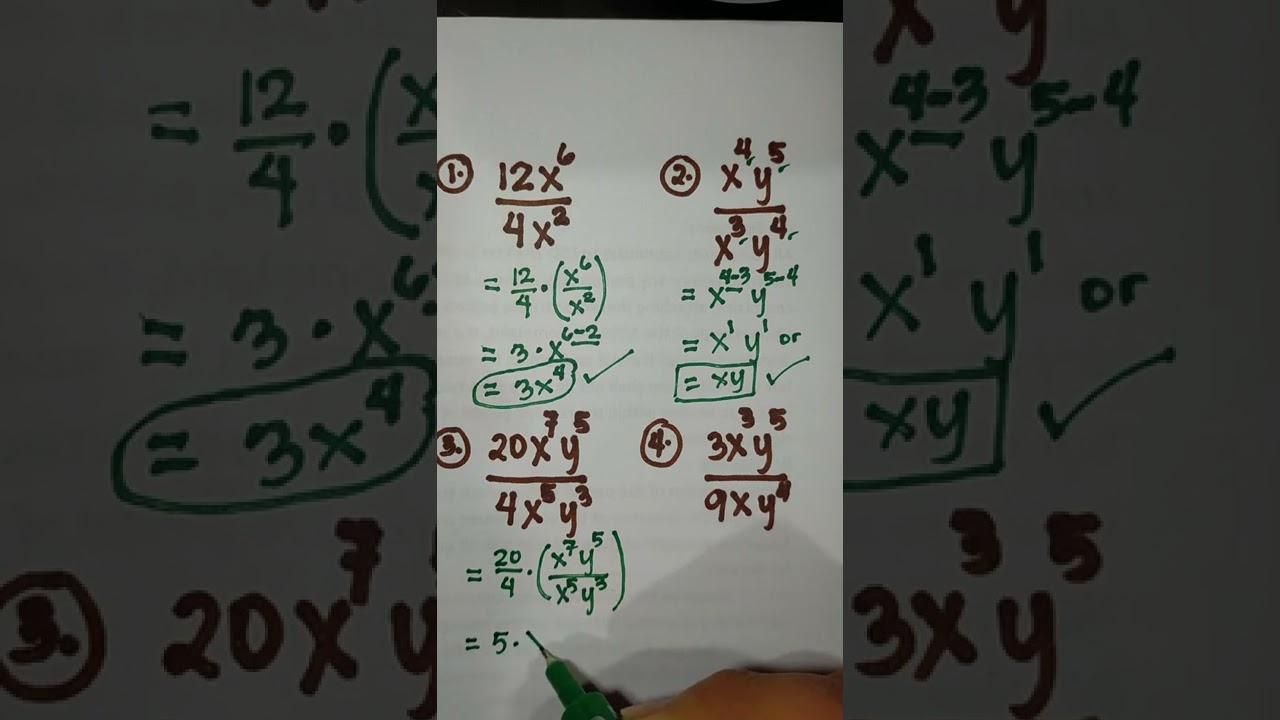 1. 12x^6 / 4x^2
= 12/4 · (x^6/x^2)
= 3 · x^6-2
= 3x^4 ✓
2. x^4y^5 / x^3y^4
= x^4-3 y^5-4
= x^1 y^1 or
= xy ✓
3. 20x^7y^5 / 4x^5y^3
= 20/4 · (x^7y^5 / x^5y^3)
= 5 ·
4. 3x^3y^5 / 9xy^4